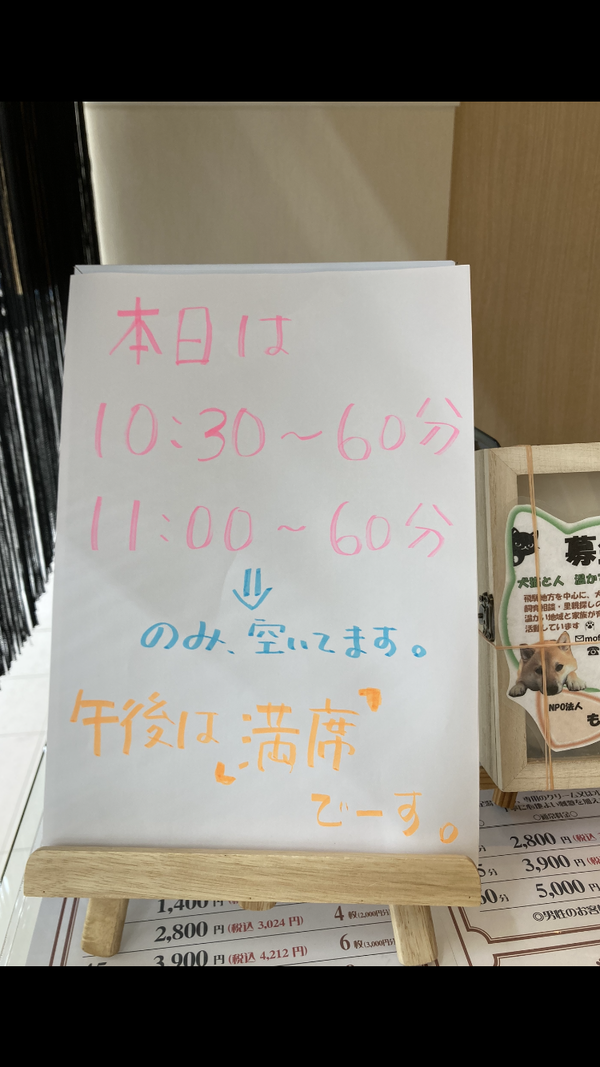 本日は
10:30～60分
11:00～60分
⇓
のみ、空いてます。
午後は「満席」
でーす。
犬猫と人 温か
飛騨地方を中心に、犬
飼育相談・里親探しの
温かい地域と家族が
活動しています
NPO法人
も
2,800円
3,900円
5,000円
◎男性のお客
1,400
2,800円(税込 3,024円) 4枚
3,900円(税込 4,212円) 6枚